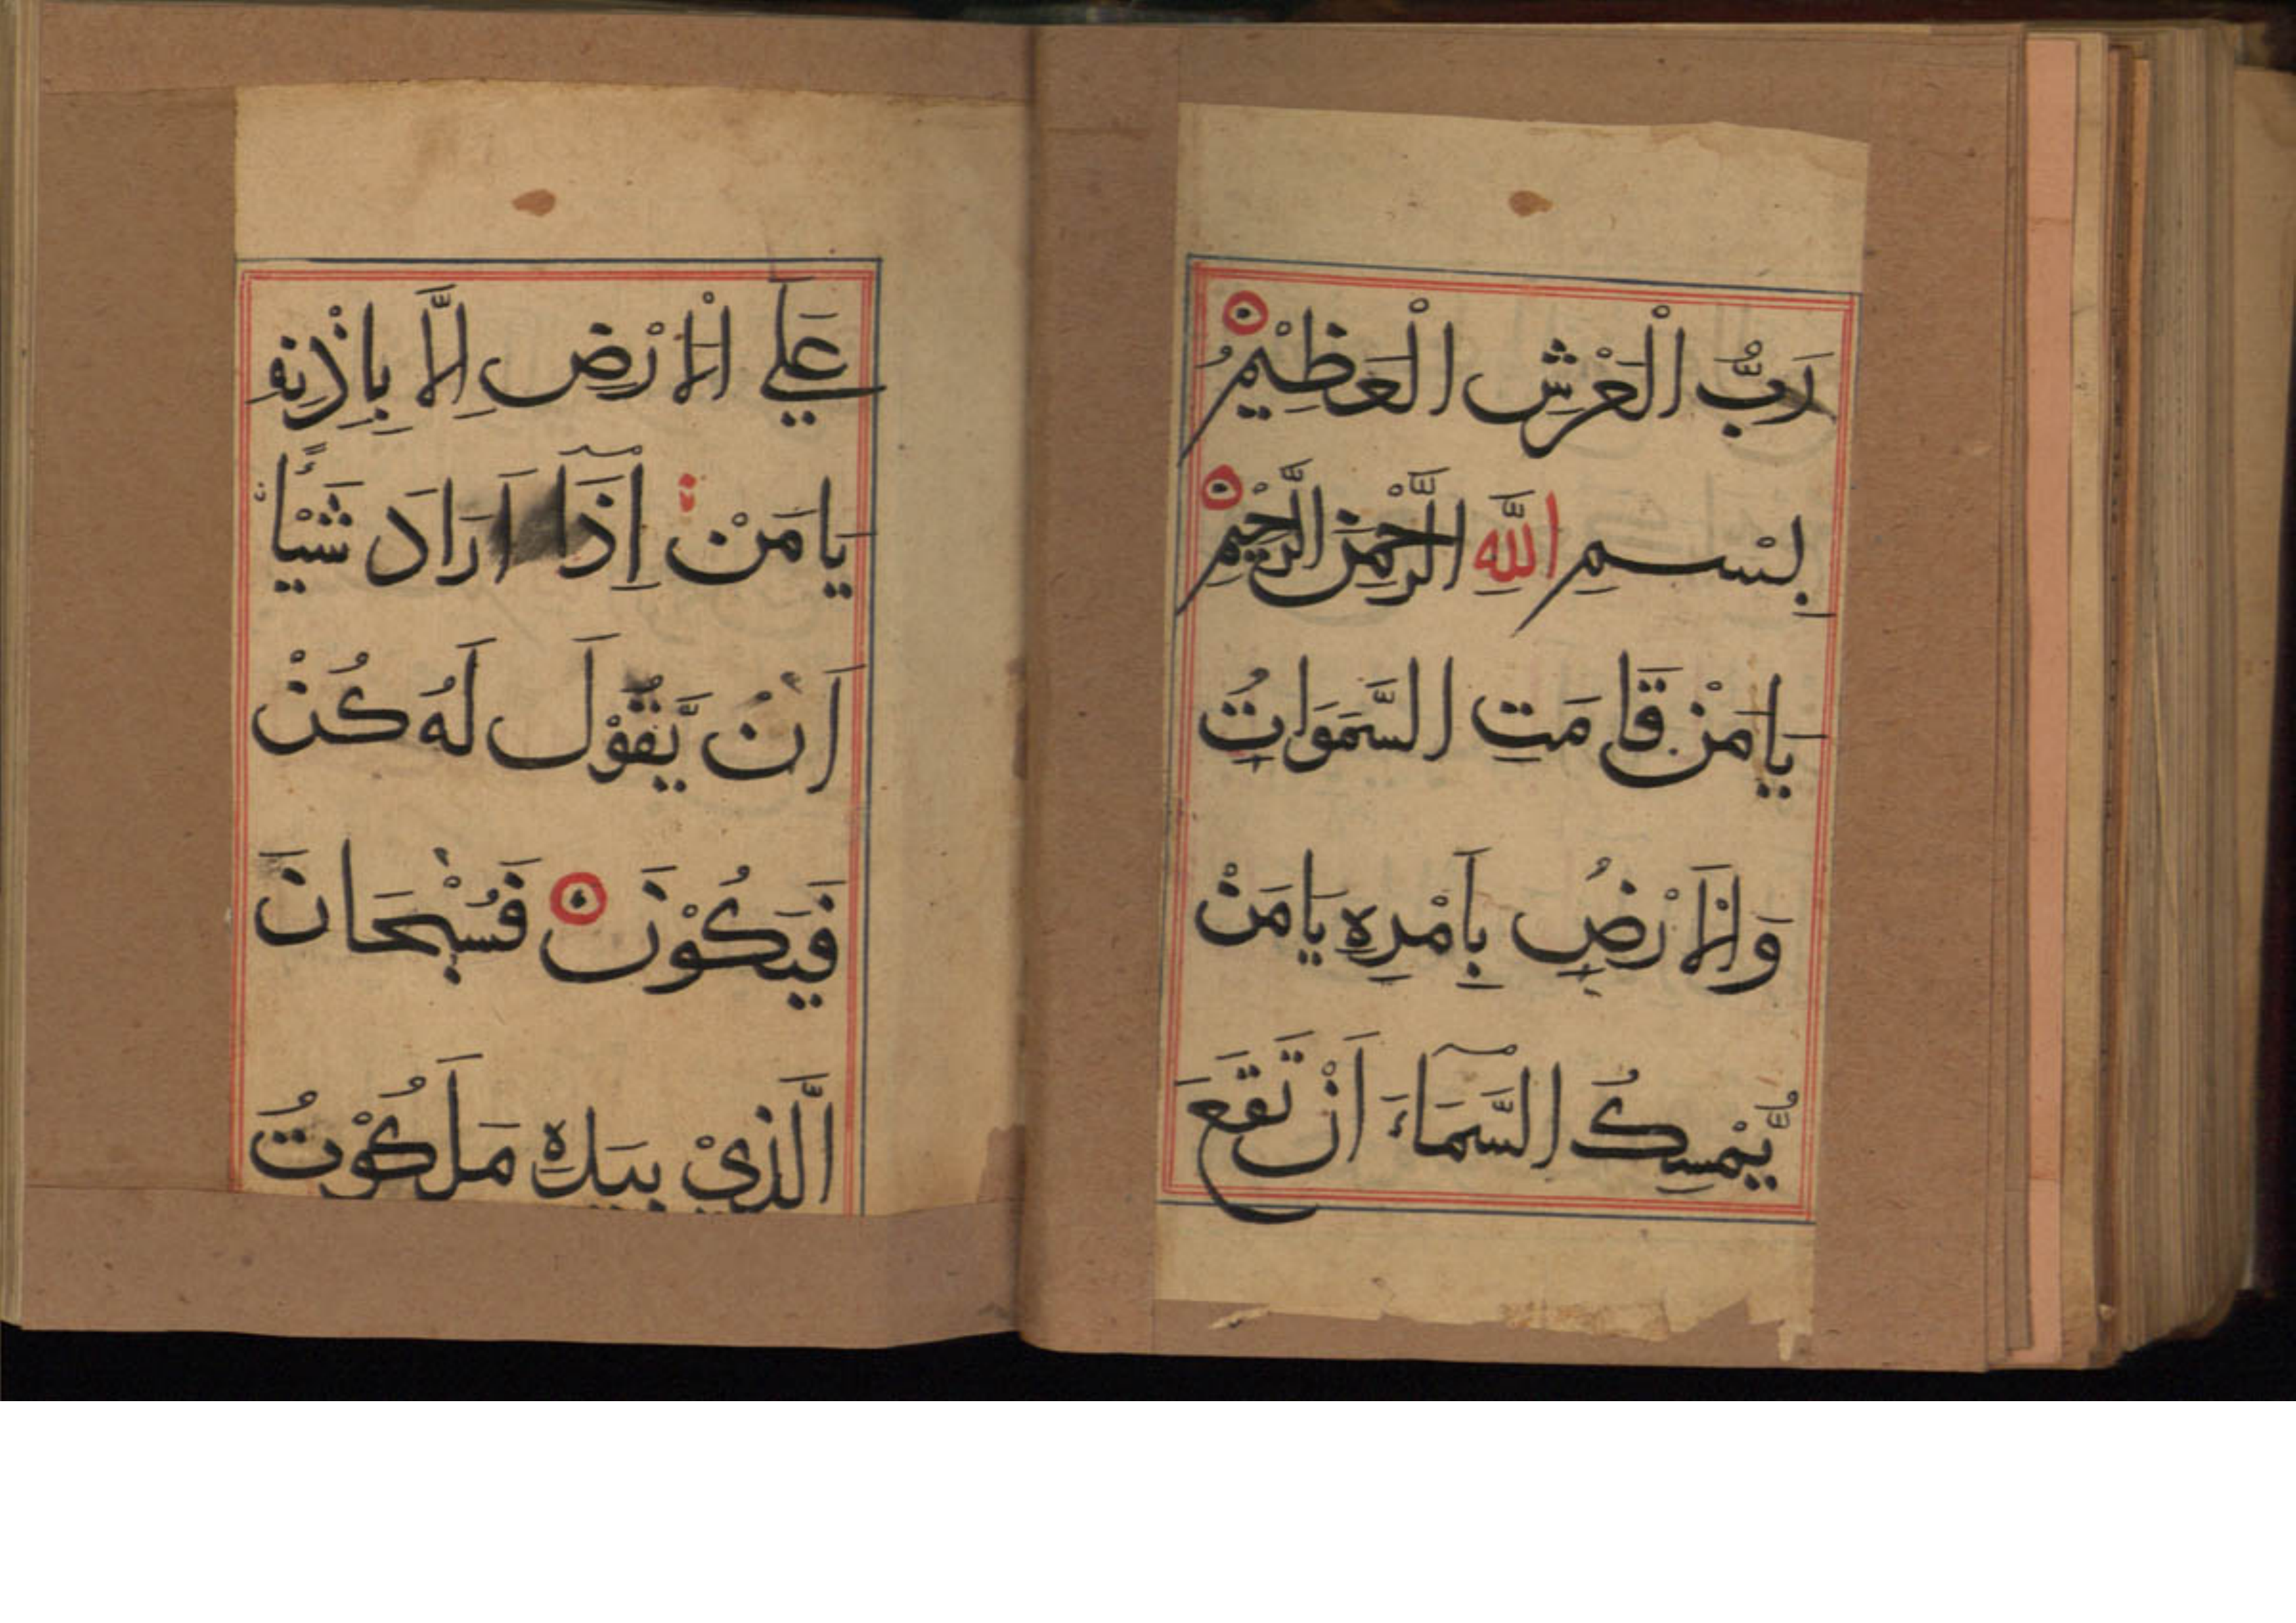 رَبُّ الْعَرْشِ الْعَظِيْمُ
بِسْــمِ اللّٰهِ الرَّحْمٰنِ الرَّحِيْمِ
يَا مَنْ قَامَتِ السَّمَوَاتُ
وَالْاَرْضُ بِاَمْرِهِ يَا مَنْ
يُّمْسِكُ السَّمَآءَ اَنْ تَقَعَ
عَلَي الْاَرْضِ اِلَّا بِاِذْنِهٖ
يَا مَنْ اِذَآ اَرَادَ شَيْـًٔا
اَنْ يَّقُوْلَ لَهُ كُنْ
فَيَكُوْنَ فَسُبْحَانَ
الَّذِيْ بِيَدِهِ مَلَكُوْتُ